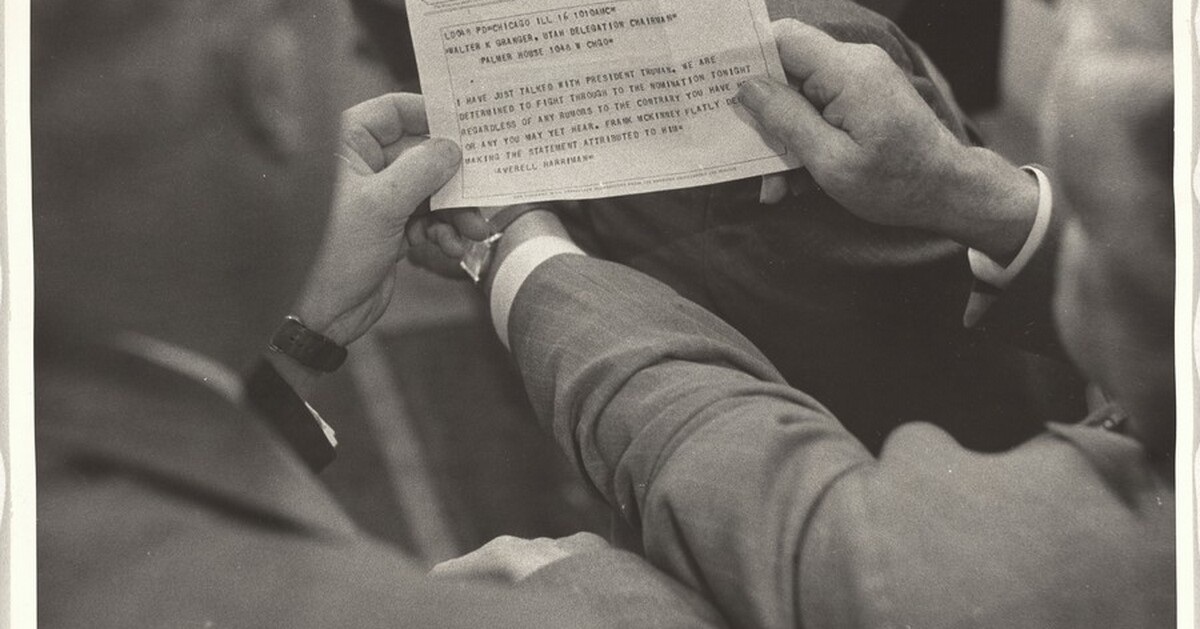 LD048 PD=CHICAGO ILL 16 1010AMC=
=WALTER K GRANGER, UTAH DELEGATION CHAIRMAN=
PALMER HOUSE 1048 W CHGO=
I HAVE JUST TALKED WITH PRESIDENT TRUMAN. WE ARE
DETERMINED TO FIGHT THROUGH TO THE NOMINATION TONIGHT
REGARDLESS OF ANY RUMORS TO THE CONTRARY YOU HAVE
OR ANY YOU MAY YET HEAR. FRANK MCKINNEY FLATLY
MAKING THE STATEMENT ATTRIBUTED TO HIM=
=AVERELL HARRIMAN=